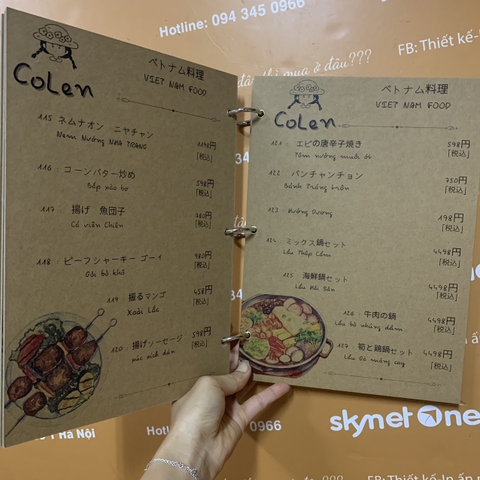 Hotline: 094 345 0966
FB: Thiết kế
CoLen
ベトナム料理
VIET NAM FOOD
115 ネムナオン ニャチャン
Nem Nướng NHA TRANG
[税込]
116 コーンバター炒め
Bắp xào bơ
598円
[税込]
117 揚げ 魚団子
Cá viên Chiên
[税込]
118 ビーフジャーキー ゴーイ
Gỏi bò khô
980円
[税込]
119 揚るマンゴ
Xoài Lắc
458円
[税込]
120 揚げソーセージ
598円
[税込]
CoLen
ベトナム料理
VIET NAM FOOD
121 エビの唐辛子焼き
Tôm nướng muối ớt
598円
[税込]
122 バンチャンチョン
Bánh Tráng trộn
750円
[税込]
123 Hướng Dương
198円
[税込]
124 ミックス鍋セット
Lẩu Thập Cẩm
4498円
[税込]
125 海鮮鍋セット
Lẩu Hải Sản
4498円
[税込]
126 牛肉の鍋
Lẩu bò nhúng dấm
4498円
[税込]
127 筍と鶏鍋セット
Lẩu Gà măng cay
4498円
[税込]
Hà Nội
Hotline
0966
skynet one
FB: Thiết kế-In ấn